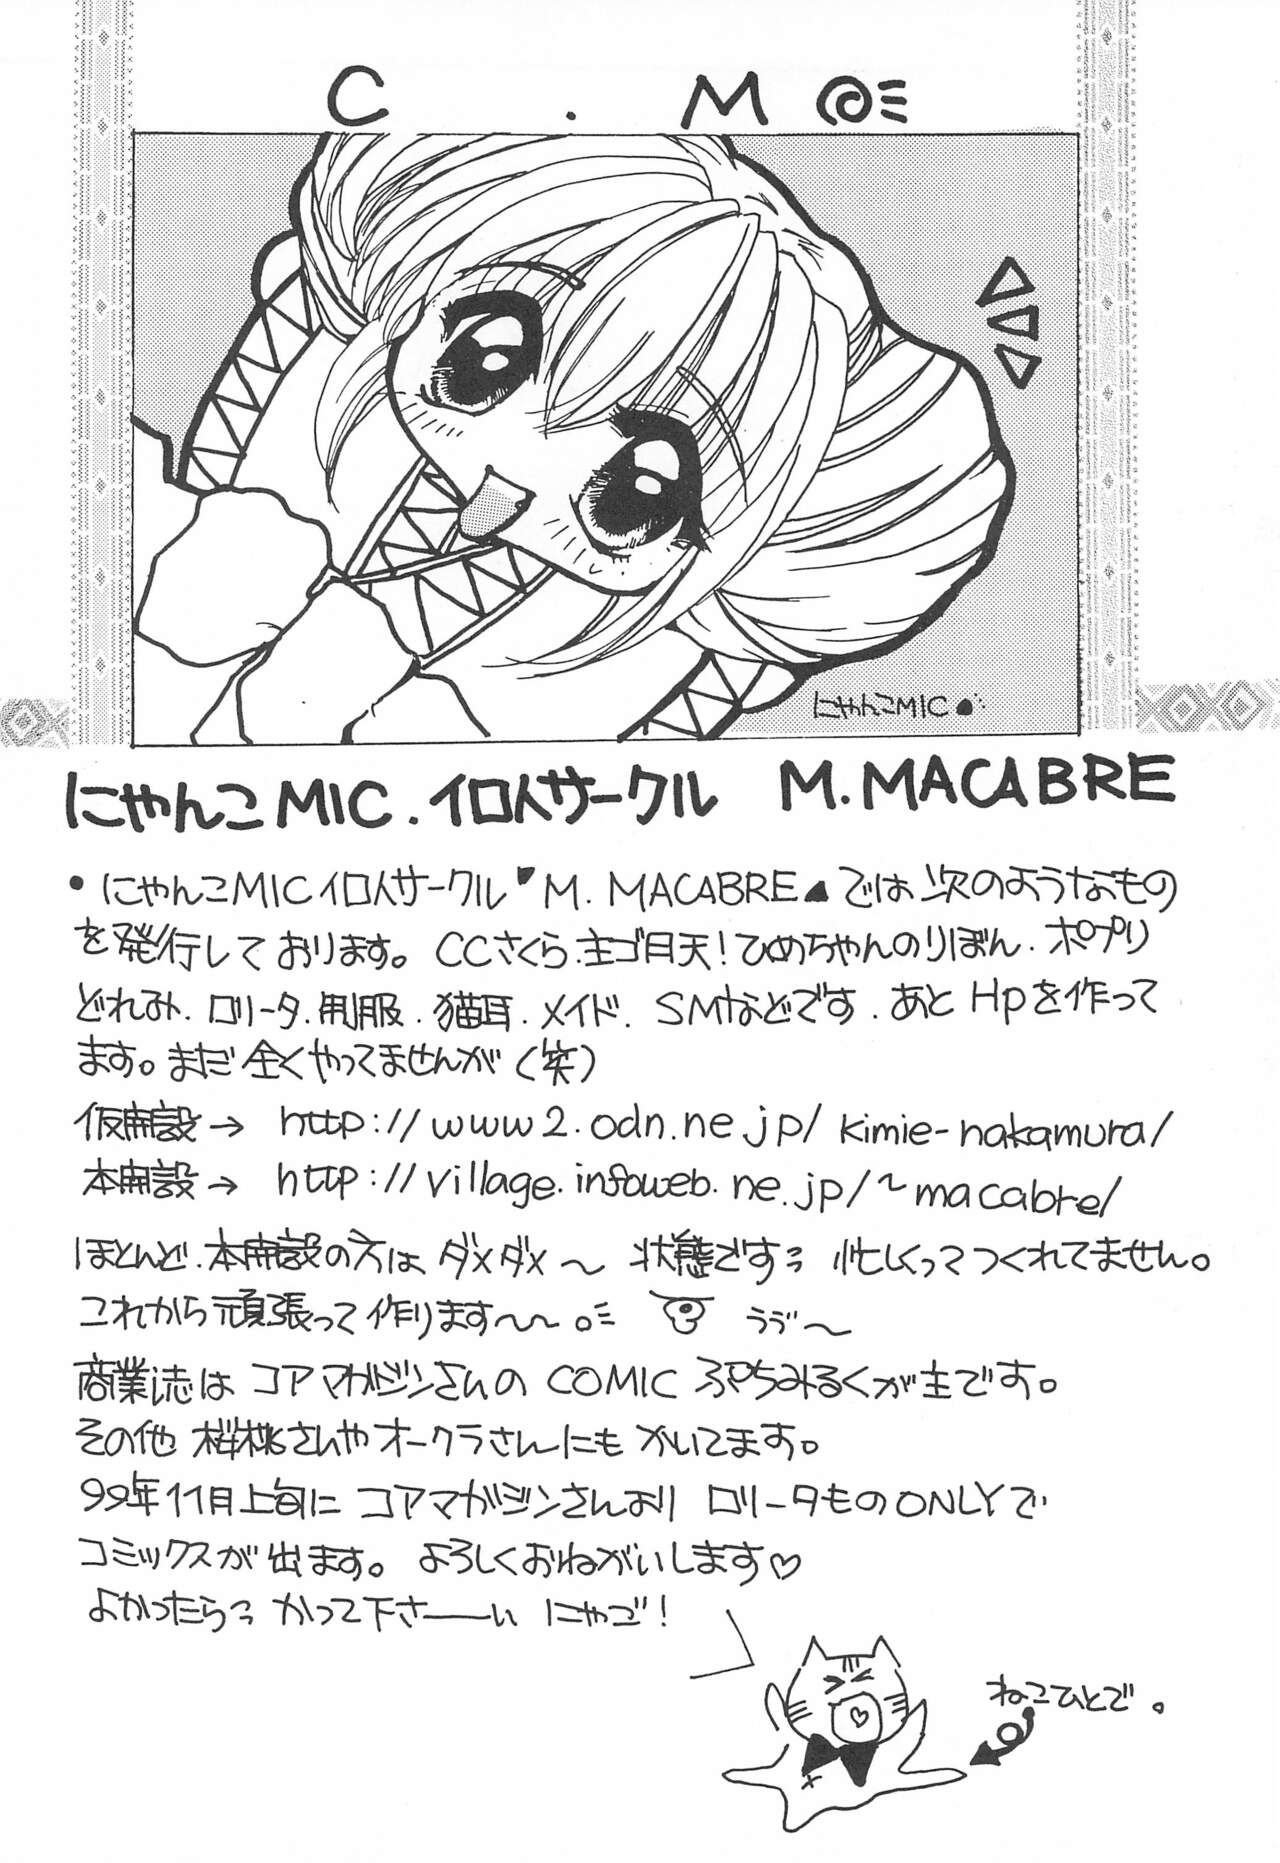 C . M
にゃんこMIC
にゃんこMIC.イロイサークル M.MACABRE
・にゃんこMICイロイサークル M. MACABRE では次のようなもの
を発行しております。CCさくら.主ゴ月天!ひめちゃんのりぼん.ポプリ
どれみ.ロリータ.制服.猫耳.メイド.SMなどです.あとHpを作って
ます。まだ全くやってませんが(笑)
仮開設→ http://www2.odn.ne.jp/kimie-nakamura/
本開設→ http://village.infoweb.ne.jp/~macabre/
ほとんど.本開設の方はダメダメ〜状態です 忙しくってつくれてません。
これから頑張って作ります〜〜。 うぅ〜
商業誌はコアマガジンさんのCOMIC ぷちみるくが主です。
その他 桜桃さんやオークラさんにもかいてます。
99年11月上旬にコアマガジンさんより ロリータものONLYで
コミックスが出ます。よろしくおねがいします♡
よかったらっ かって下さーーい にゃご!
ねこひとで。